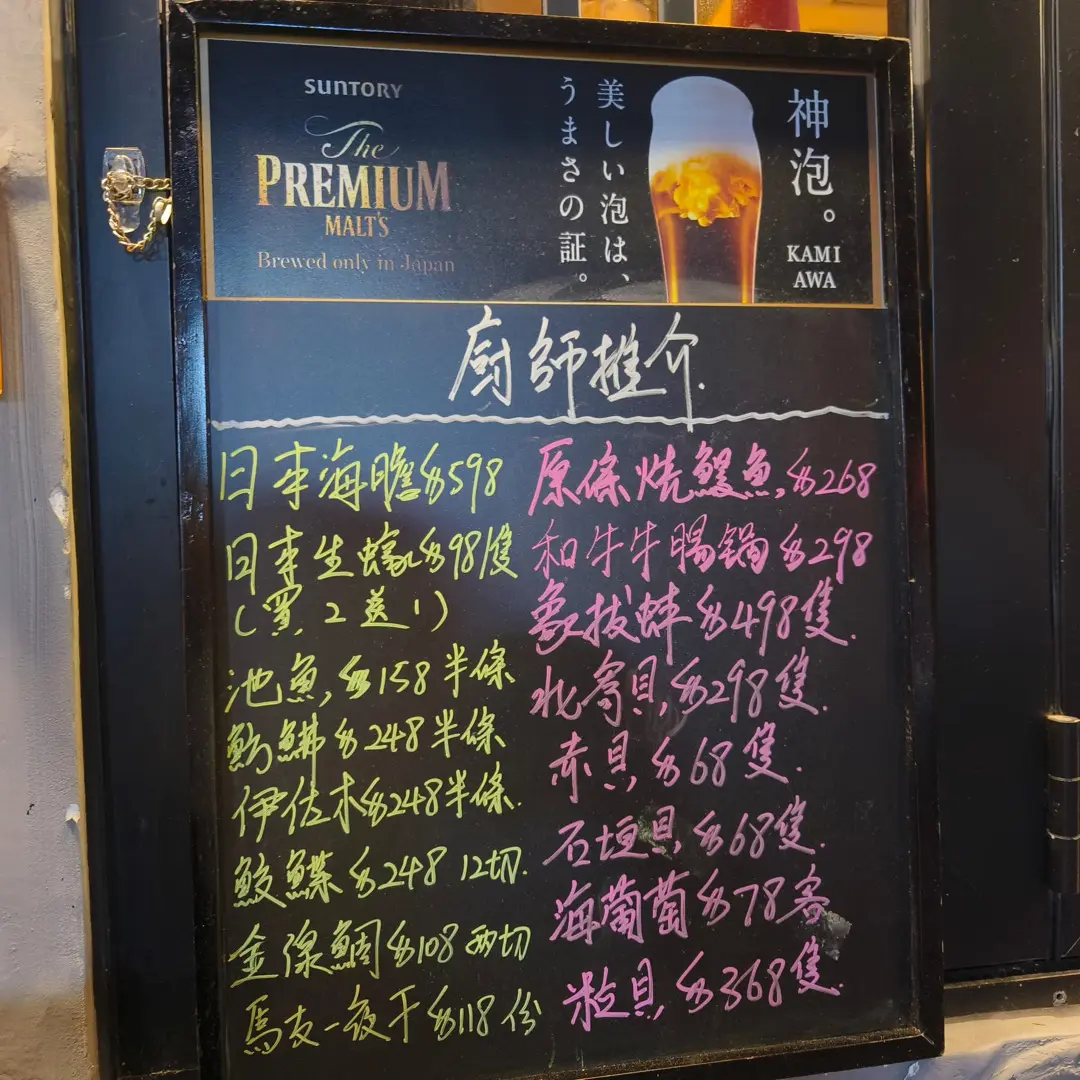 SUNTORY
The
PREMIUM
MALT'S
Brewed only in Japan
美しい泡は、
うまさの証。
神泡。
KAMI
AWA
廚師推介.
日本海膽$598
日本生蠔$98隻
(買2送1)
池魚,$158半條
魴鮄$248半條
伊佐木$248半條.
鮫鰈$248 12切.
金線鯛$108 両切
馬友一夜干$118份
原條燒鰻魚,$268
和牛牛腸鍋$298
象拔蚌$498隻.
北寄貝,$298隻.
赤貝,$68隻.
石垣貝,$68隻.
海葡萄$78客
粒貝,$368隻.